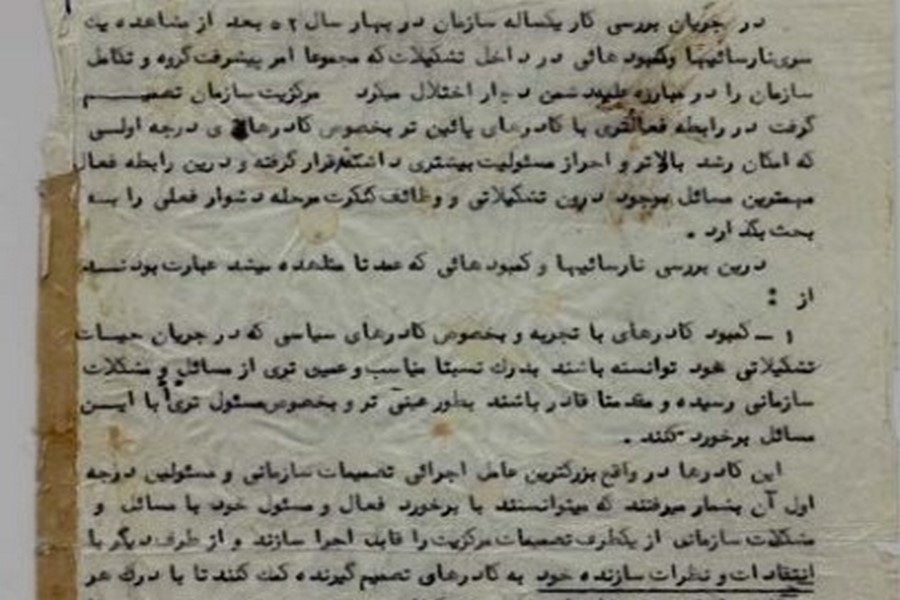 در جریان بررسی کار یکساله سازمان در بهار سال ۵۲ بعد از مشاهده یک
سری نارسائیها وکمبود هائی در داخل تشکیلات که مجموعا امر پیشرفت گروه و تکامل
سازمان را در مبارزه ضد دشمن دچار اختلال میکرد مرکزیت سازمان تصمیم
گرفت در رابطه فعالتری با کادرهای پائین تر بخصوص کادرهای درجه اولی
که امکان رشد بالاتر و احراز مسئولیت بیشتری داشتند قرار گرفته و درین رابطه فعال
مهمترین مسائل موجود درون تشکیلاتی و وظائف کنکرت مرحله دشوار فعلی را به
بحث بگذارد .
درین بررسی نارسائیها و کمبود هائی که عمدتا مشاهده میشد عبارت بودند
از :
۱ ــ کمبود کادرهای با تجربه و بخصوص کادرهای سیاسی که در جریان حیات
تشکیلاتی خود توانسته باشند بدرك نسبتا مناسب و عمیق تری از مسائل و مشکلات
سازمانی رسیده و مقدمتا قادر باشند بطور عینی تر و بخصوص مسئول تری با این
مسائل برخورد کنند .
این کادرها در واقع بزرگترین عامل اجرائی تصمیمات سازمانی و مسئولین درجه
اول آن بشمار میرفتند که میتوانستند با برخورد فعال و مسئول خود با مسائل و
مشکلات سازمانی از یکطرف تصمیمات مرکزیت را قابل اجرا سازند و از طرف دیگر با
انتقادات و نظرات سازنده خود به کادرهای تصمیم گیرنده کمك کنند تا با درك هر